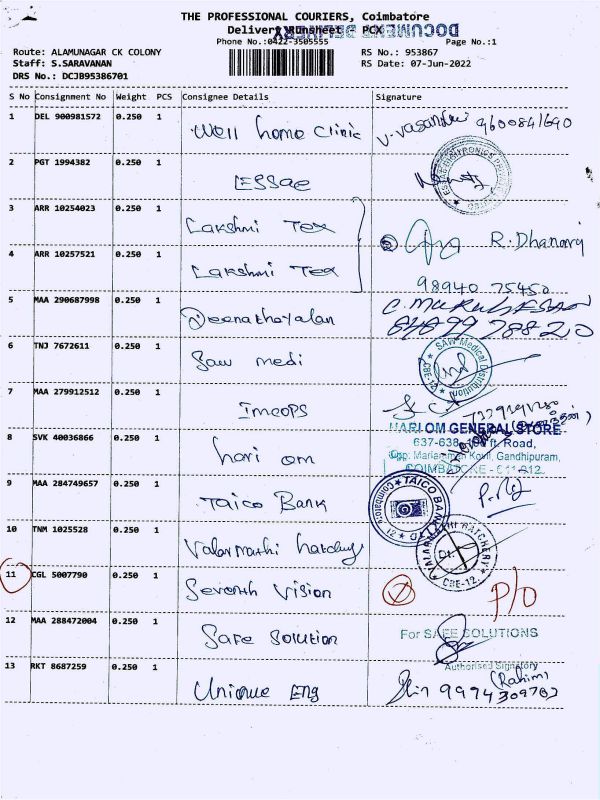 THE PROFESSIONAL COURIERS, Coimbatore
Delivery Runsheet - PCX
DOCUMENT DELIVERY
Phone No.:0422-3505555 Page No.:1
Route: ALAMUNAGAR CK COLONY RS No.: 953867
Staff: S.SARAVANAN RS Date: 07-Jun-2022
DRS No.: DCJB95386701
S No Consignment No Weight PCS Consignee Details Signature
1 DEL 900981572 0.250 1 Well home Clinic V. Vasandhi 9600841690
2 PGT 1994382 0.250 1 ESSae
3 ARR 10254023 0.250 1 Lakshmi Tex
R. Dhanaraj
4 ARR 10257521 0.250 1 Lakshmi Tex
98940 75450
5 MAA 290687998 0.250 1 Deenathayalan C. MURUGESAN
6 TNJ 7672611 0.250 1 Saw medi SAW Medical Distributors CBE-12
7 MAA 279912512 0.250 1 Imcops
HARI OM GENERAL STORE
8 SVK 40036866 0.250 1 hari om 637-638, ft. Road,
Opp: Mariamman Kovil, Gandhipuram,
COIMBATORE - 641 012.
9 MAA 284749657 0.250 1 Taico Bank TAICO BANK LTD Coimbatore-12
10 TNM 1025528 0.250 1 Valarmathi hatchery VALARMATHI HATCHERY Dt. CBE-12.
11 CGL 5007790 0.250 1 Seventh Vision P/O
12 MAA 288472004 0.250 1 Safe Solution For SAFE SOLUTIONS
Authorised Signatory
13 RKT 8687259 0.250 1 Unique Eng (Rahim) 9994309763